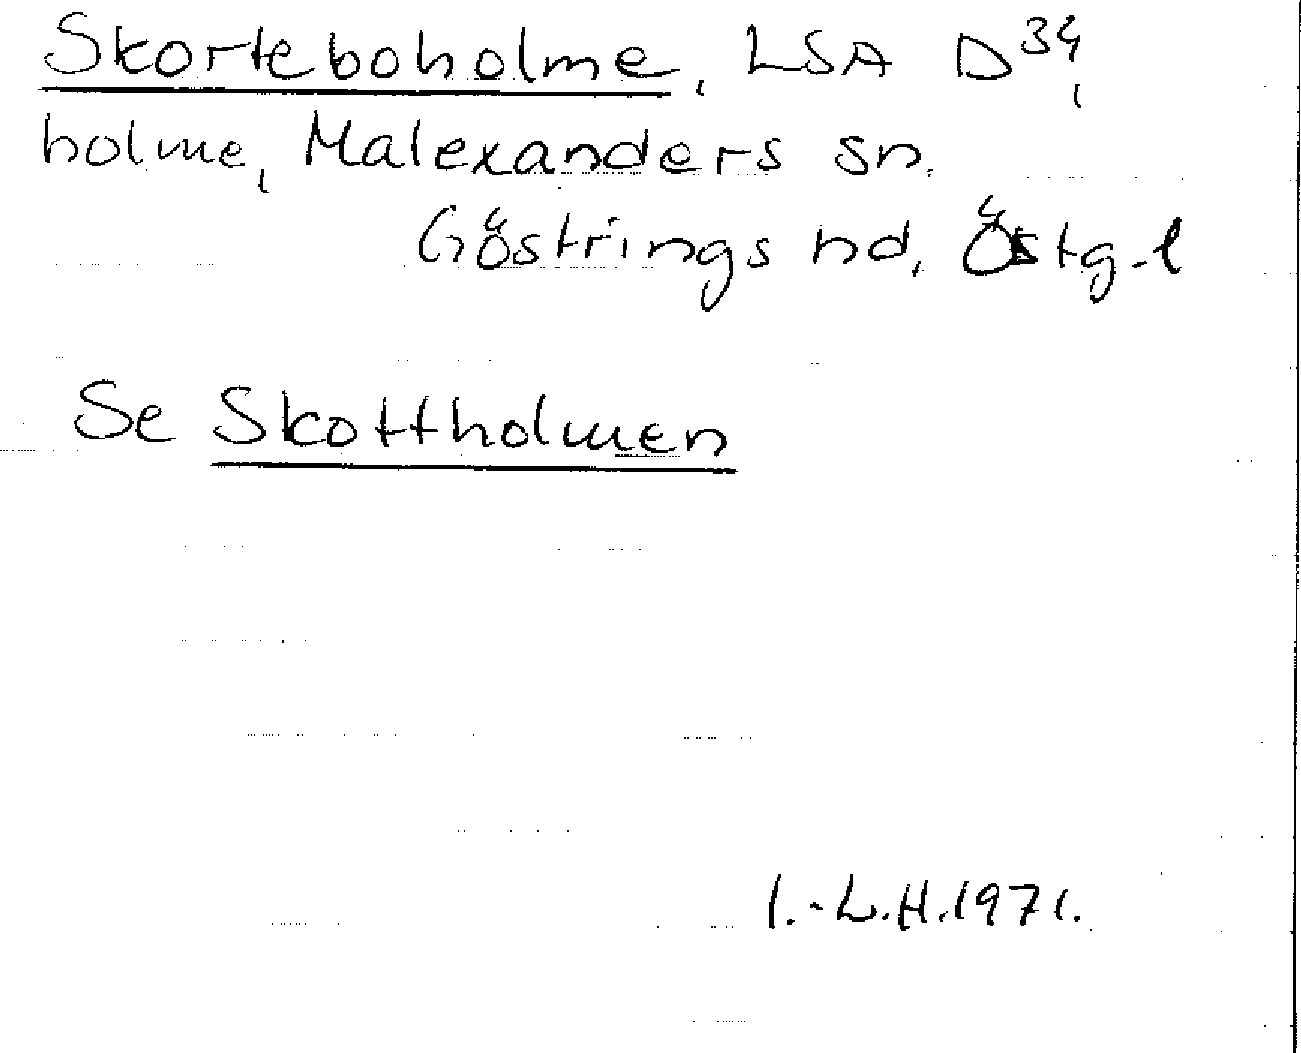 Skorteboholme, LSA D³⁴,
holme, Malexanders sn.
Göstrings hd, Östg.l
Se Skottholmen
I.-L.H.1971.